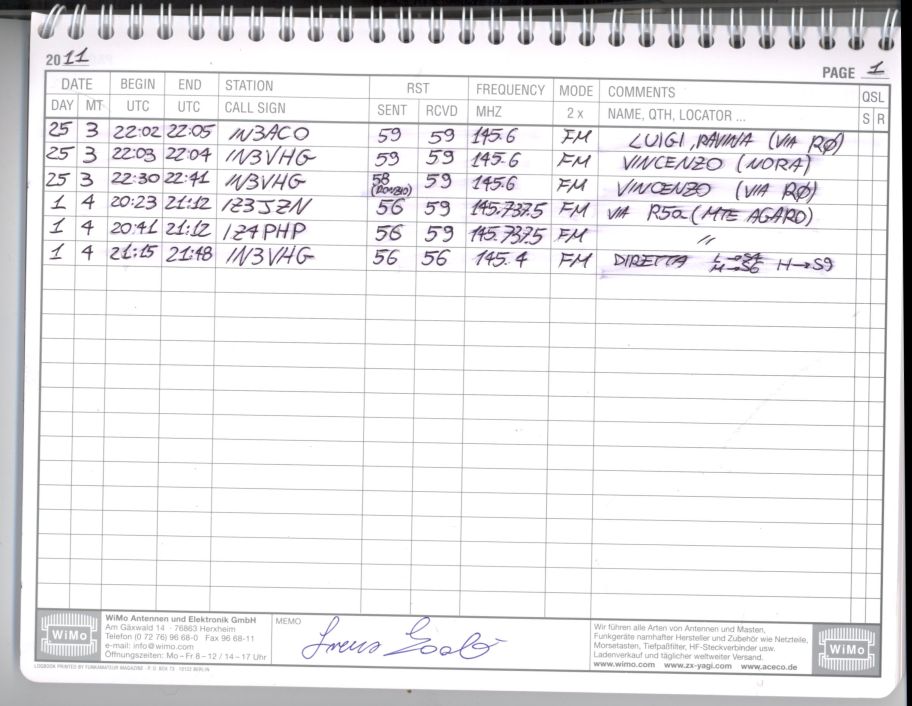 2011
PAGE 1
DATE BEGIN END STATION RST FREQUENCY MODE COMMENTS QSL
DAY MT UTC UTC CALL SIGN SENT RCVD MHZ 2 x NAME, QTH, LOCATOR ... S R
25 3 22:02 22:05 IN3ACO 59 59 145.6 FM LUIGI, RAVINA (VIA RØ)
25 3 22:03 22:04 IN3VHG 59 59 145.6 FM VINCENZO (NORA)
25 3 22:30 22:41 IN3VHG 58 59 145.6 FM VINCENZO (VIA RØ)
1 4 20:23 21:12 IZ3JZN 56 59 145.737.5 FM VIA R5a (MTE AGARO)
1 4 20:41 21:12 IZ4PHP 56 59 145.737.5 FM "
1 4 21:15 21:48 IN3VHG 56 56 145.4 FM DIRETTA M→S6 H→S9
WiMo
WiMo Antennen und Elektronik GmbH
Am Gäxwald 14 · 76863 Herxheim
Telefon (0 72 76) 96 68-0 Fax 96 68-11
e-mail: info@wimo.com
Öffnungszeiten: Mo – Fr 8 – 12 / 14 – 17 Uhr
MEMO
Wir führen alle Arten von Antennen und Masten,
Funkgeräte namhafter Hersteller und Zubehör wie Netzteile,
Morsetasten, Tiefpaßfilter, HF-Steckverbinder usw.
Ladenverkauf und täglicher weltweiter Versand.
www.wimo.com www.zx-yagi.com www.aceco.de
WiMo
LOGBOOK PRINTED BY FUNKAMATEUR MAGAZINE · P. O. BOX 73 · 10122 BERLIN